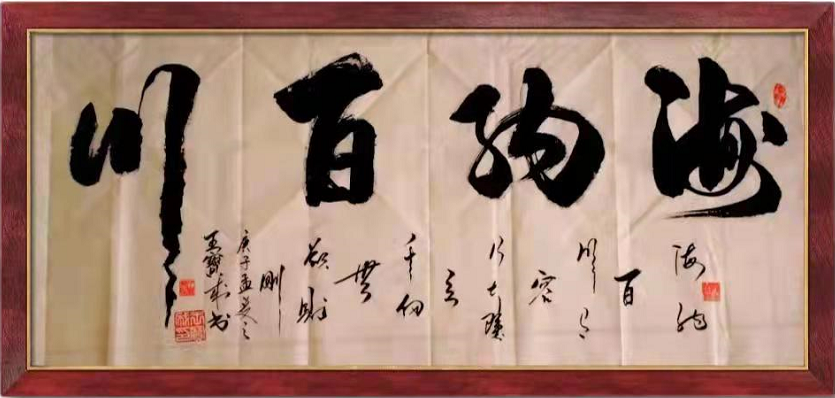 海纳百川
海纳
百
川有
容
乃大壁
立
千仞
無
欲则
刚
庚子孟夏之
王寶书